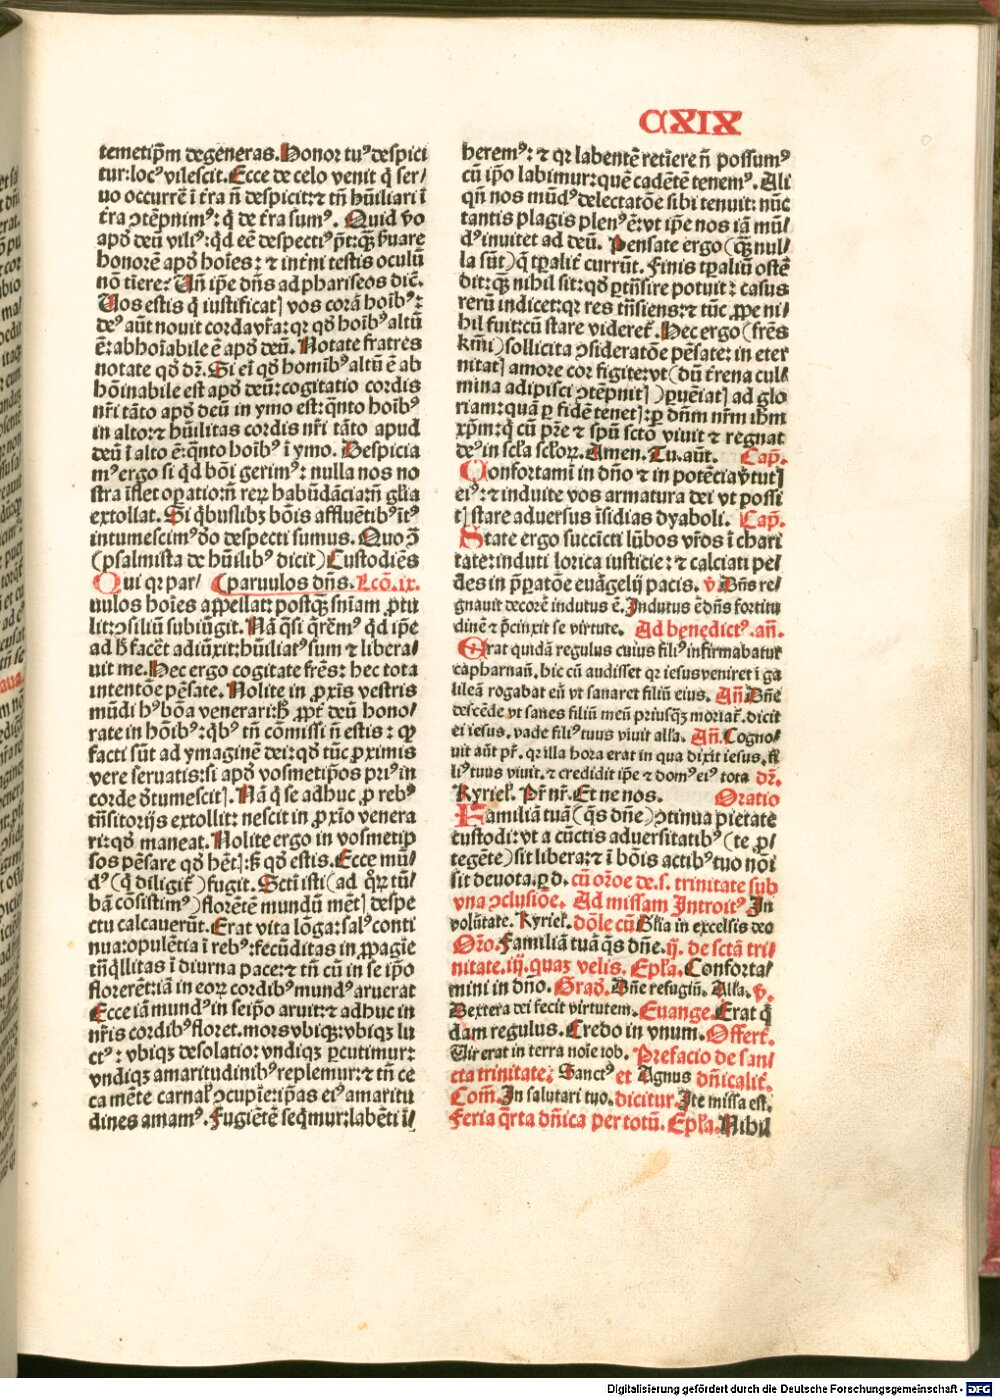 CXIX
temetip̄m degeneras. Honor tuꝰ despici
tur: locꝰ vilescit. Ecce de celo venit q̇ ser/
uo occurrē ī t̄ra n̄ despicit: ⁊ tn̄ hūiliari ī
t̄ra ↄtēpnimꝰ: q̇ de t̄ra sumꝰ. Quid v̄o
apđ deū viliꝰ: qđ eē despectiꝰ pt̄: qꝫ s̄uare
honorē apđ hoīes: ⁊ int̄ni testis oculū
nō tiere? Un̄ ip̄e dn̄s ad phariseos dic̄.
Uos estis q̇ iustificatꝭ vos corā hoībꝰ:
deꝰ aūt nouit corda vr̄a: qꝛ qđ hoībꝰ altū
ē: abhoīabile ē apđ deū. Notate fratres
notate qđ dꝛ̄. Si eī qđ homībꝰ altū ē ab
hōinabile est apđ deū: cogitatio cordis
nr̄i tāto apđ deū in ymo est: qn̄to hoībꝰ
in alto: ⁊ hūilitas cordis nr̄i tāto apud
deū ī alto ē: qn̄to hoībꝰ ī ymo. Despicia
mꝰ ergo si qđ bōi gerimꝰ: nulla nos no
stra īflet oꝑatio: n̄ reꝝ habūdācia: n̄ glīa
extollat. Si q̇buslibꝫ bōis affluētibꝰ ītꝰ
intumescimꝰ: đo despecti sumus. Quo ↄ̄
(psalmista de hūilibꝰ dicit) Custodiēs
Qui qꝛ par/ (paruulos dn̄s. Lcō. ix.
uulos hoīes appellat: postqꝫ sn̄iam ꝓtu
lit: ↄsiliū subiūgit. Nā q̇si q̄remꝰ qđ ip̄e
ad h̄ facēt adiūxit: hūiliatꝰ sum ⁊ libera/
uit me. Hec ergo cogitate fr̄es: hec tota
intentōe pēsate. Nolite in ꝓxīs vestris
mūdi hꝰ bōa venerari: h̄ ꝓpt̄ deū hono/
rate in hōibꝰ: q̇bꝰ tn̄ cōmissi n̄ estis: ꝙ
facti sūt ad ymaginē dei: qđ tūc ꝓximis
vere seruatis: si apđ vosmetip̄os priꝰ in
corde n̄ tumescitꝭ. Nā q̇ se adhuc ꝓ rebꝰ
tn̄sitorijs extollit: nescit in ꝓxīo venera
ri: qđ maneat. Nolite ergo in vosmetip
sos pēsare qđ hēt̄: s̄ qđ estis. Ecce mū/
dꝰ (q̇ diligit̄) fugit. Sct̄i isti (ad qꝝ tū/
bā cōsistimꝰ) florētē mundū mētꝭ despe
ctu calcauerūt. Erat vita lōga: salꝰ conti
nua: opulētia ī rebꝰ: fecūditas in ꝓpagīe
tn̄q̇llitas ī diurna pace: ⁊ tn̄ cū in se ip̄o
floreret: iā in eoꝝ cordibꝰ mundꝰ aruerat
Ecce iā mundꝰ in seip̄o aruit: ⁊ adhuc in
nr̄is cordibꝰ floret. mors vbiqꝫ: vbiqꝫ lu
ctꝰ: vbiqꝫ desolatio: vndiqꝫ ꝑcutimur:
vndiqꝫ amaritudinibꝰ replemur: ⁊ tn̄ ce
ca mēte carnal̄ ↄcupīe: ip̄as eiꝰ amaritu
dines amamꝰ. Fugiētē seq̇mur: labēti ī/
heremꝰ: ⁊ qꝛ labentē retiere n̄ possumꝰ
cū ip̄o labimur: quē cadētē tenemꝰ. Ali
qn̄ nos mūdꝰ delectatōe sibi tenuit: nūc
tantis plagis plenꝰ ē: vt ip̄e nos iā mū/
dꝰ inuitet ad deū. Pensate ergo (qꝫ nul/
la sūt) q̄ tꝑalit̄ currūt. Finis tꝑaliū ostē
dit: qꝫ nihil sit: qđ pt̄nsire potuit: casus
rerū indicet: qꝛ res tn̄siens: ⁊ tūc ꝓpe ni/
hil fuit: cū stare videret̄. Hec ergo (fr̄es
km̄i) sollicita ↄsideratōe pēsate: in eter
nitatꝭ amore cor figite: vt (dū t̄rena cul/
mina adipisci ↄtēpnitꝭ) ꝑuēiatꝭ ad glo
riam: quā ꝑ fidē tenetꝭ: ꝑ dn̄m nr̄m ihm̄
xp̄m: q̇ cū pr̄e ⁊ spū sctō viuit ⁊ regnat
deꝰ in scl̄a scl̄oꝝ. Amen. Tu. aūt. Cap̄.
Confortamī in dn̄o ⁊ in potētia v̄tutꝭ
eiꝰ: ⁊ induite vos armatura dei vt possi
tꝭ stare aduersus īsidias dyaboli. Cap̄.
State ergo succīcti lūbos vr̄os ī chari
tate: induti lorica iusticie: ⁊ calciati pe/
des in p̄ꝑatōe euāgelij pacis. v̄ Dn̄s re/
gnauit decorē indutus ē. Indutus ē dn̄s fortitu
dinē ⁊ p̄cinxit se virtute. Ad benedictꝰ. an̄.
Erat quidā regulus cuius filiꝰ infirmabatur
capharnaū. hic cū audisset qꝛ iesus veniret ī ga
lileā rogabat eū vt sanaret filiū eius. An̄. Dn̄e
descēde vt sanes filiū meū priusqꝫ moriat̄. dicit
ei iesus. vade filiꝰ tuus viuit all̄a. An̄. Cogno/
uit aūt pr̄. qꝛ illa hora erat in qua dixit iesus. fi
liꝰ tuus viuit. ⁊ credidit ip̄e ⁊ domꝰ eiꝰ tota dꝛ̄.
Kyriel̄. Pr̄ nr̄. Et ne nos. Oratio
Familiā tuā (q̄s dn̄e) ↄtinua pietate
custodi: vt a cūctis aduersitatibꝰ (te ꝓ/
tegēte) sit libera: ⁊ ī bōis actibꝰ tuo noī
sit deuota. ꝑ d. cū orōe de. s. trinitate sub
vna ↄclusiōe. Ad missam Introitꝰ. In
volūtate. Kyriel̄. dōle cū Gl̄ia in excelsis deo
Orō. Familiā tuā q̄s dn̄e. ij. de sctā tri/
nitate. iij. quaꝫ velis. Epl̄a. Conforta/
mini in dn̄o. Građ. Dn̄e refugiū. All̄a. v̄.
Dextera dei fecit virtutem. Euange. Erat q̇
dam regulus. Credo in vnum. Offert̄.
Uir erat in terra noīe iob. Prefacio de san/
cta trinitate. Sanctꝰ et Agnus dn̄icalit̄.
Com̄. In salutari tuo. dicitur. Ite missa est.
Feria q̄rta dn̄ica per totū. Epl̄a. Nihil
Digitalisierung gefördert durch die Deutsche Forschungsgemeinschaft - DFG